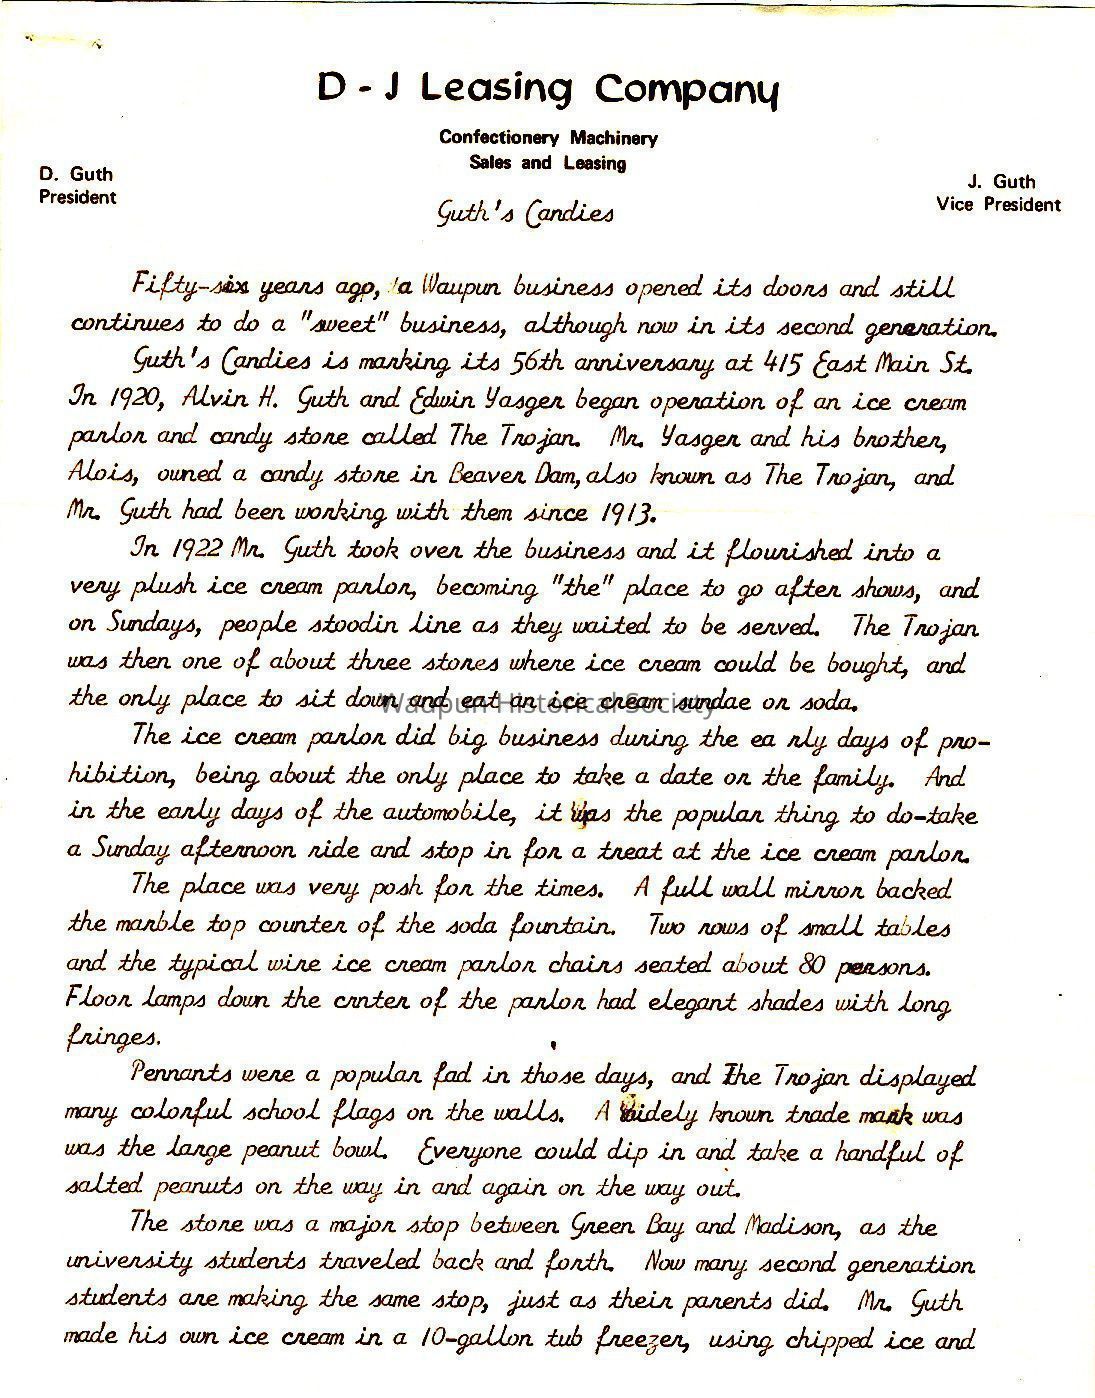 D - J Leasing Company
Confectionery Machinery
Sales and Leasing
D. Guth
President
J. Guth
Vice President
Guth's Candies
Fifty-six years ago, a Waupun business opened its doors and still
continues to do a "sweet" business, although now in its second generation.
Guth's Candies is marking its 56th anniversary at 415 East Main St.
In 1920, Alvin H. Guth and Edwin Yasger began operation of an ice cream
parlor and candy store called The Trojan. Mr. Yasger and his brother,
Alois, owned a candy store in Beaver Dam, also known as The Trojan, and
Mr. Guth had been working with them since 1913.
In 1922 Mr. Guth took over the business and it flourished into a
very plush ice cream parlor, becoming "the" place to go after shows, and
on Sundays, people stoodin line as they waited to be served. The Trojan
was then one of about three stores where ice cream could be bought, and
the only place to sit down and eat an ice cream sundae or soda.
Waupun Historical Society
The ice cream parlor did big business during the ea rly days of pro-
hibition, being about the only place to take a date or the family. And
in the early days of the automobile, it was the popular thing to do-take
a Sunday afternoon ride and stop in for a treat at the ice cream parlor.
The place was very posh for the times. A full wall mirror backed
the marble top counter of the soda fountain. Two rows of small tables
and the typical wire ice cream parlor chairs seated about 80 persons.
Floor lamps down the cnnter of the parlor had elegant shades with long
fringes.
Pennants were a popular fad in those days, and The Trojan displayed
many colorful school flags on the walls. A widely known trade mark was
was the large peanut bowl. Everyone could dip in and take a handful of
salted peanuts on the way in and again on the way out.
The store was a major stop between Green Bay and Madison, as the
university students traveled back and forth. Now many second generation
students are making the same stop, just as their parents did. Mr. Guth
made his own ice cream in a 10-gallon tub freezer, using chipped ice and